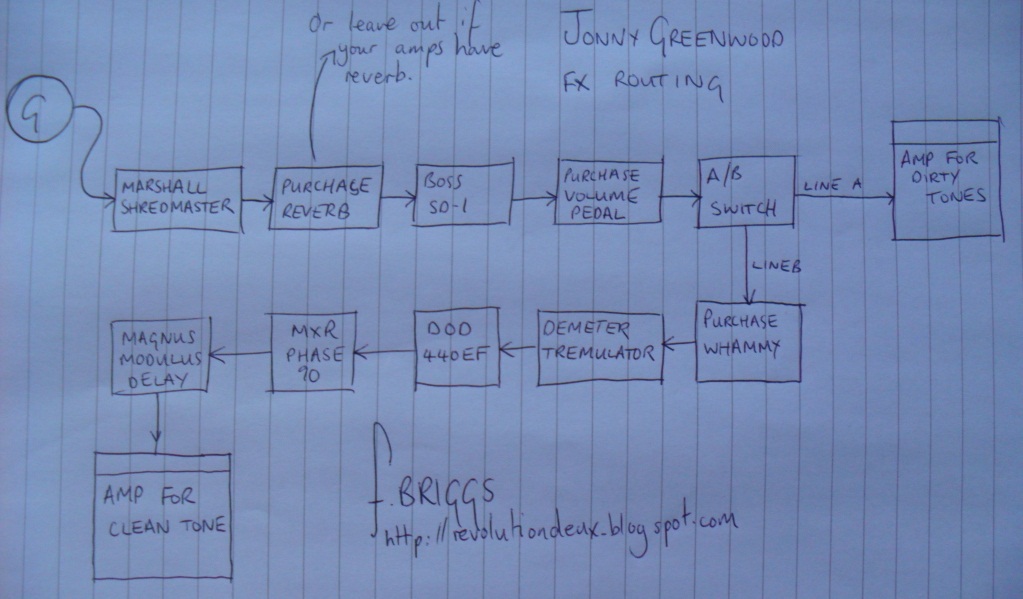 Or leave out if
your amps have
reverb.
JONNY GREENWOOD
FX ROUTING
G
MARSHALL
SHREDMASTER
PURCHASE
REVERB
BOSS
SD-1
PURCHASE
VOLUME
PEDAL
A/B
SWITCH
LINE A
AMP FOR
DIRTY
TONES
LINE B
PURCHASE
WHAMMY
DEMETER
TREMULATOR
DOD
440EF
MXR
PHASE
90
MAGNUS
MODULUS
DELAY
AMP FOR
CLEAN TONE
f.BRIGGS
http://revolutiondeux.blogspot.com